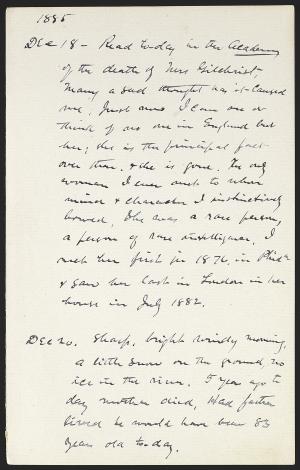 1885
Dec 18 - Read to-day in the Academy
of the death of Mrs Gilchrist,
Many a sad thought has it caused
me. Just now I can
think of no one in England but
her; she is the principal fact
over there, & she is gone. The only
woman I ever met to whose
mind & character I instinctively
bowed. She was a rare person,
a person of rare intelligence. I
met her first in 1876, in Phila
& saw her last in London in her
house in July 1882.
Dec 20. Sharp, bright windy morning,
a little snow on the ground, no
ice in the river. 5 years ago to
day mother died, Had father
lived he would have been 83
years old to-day.